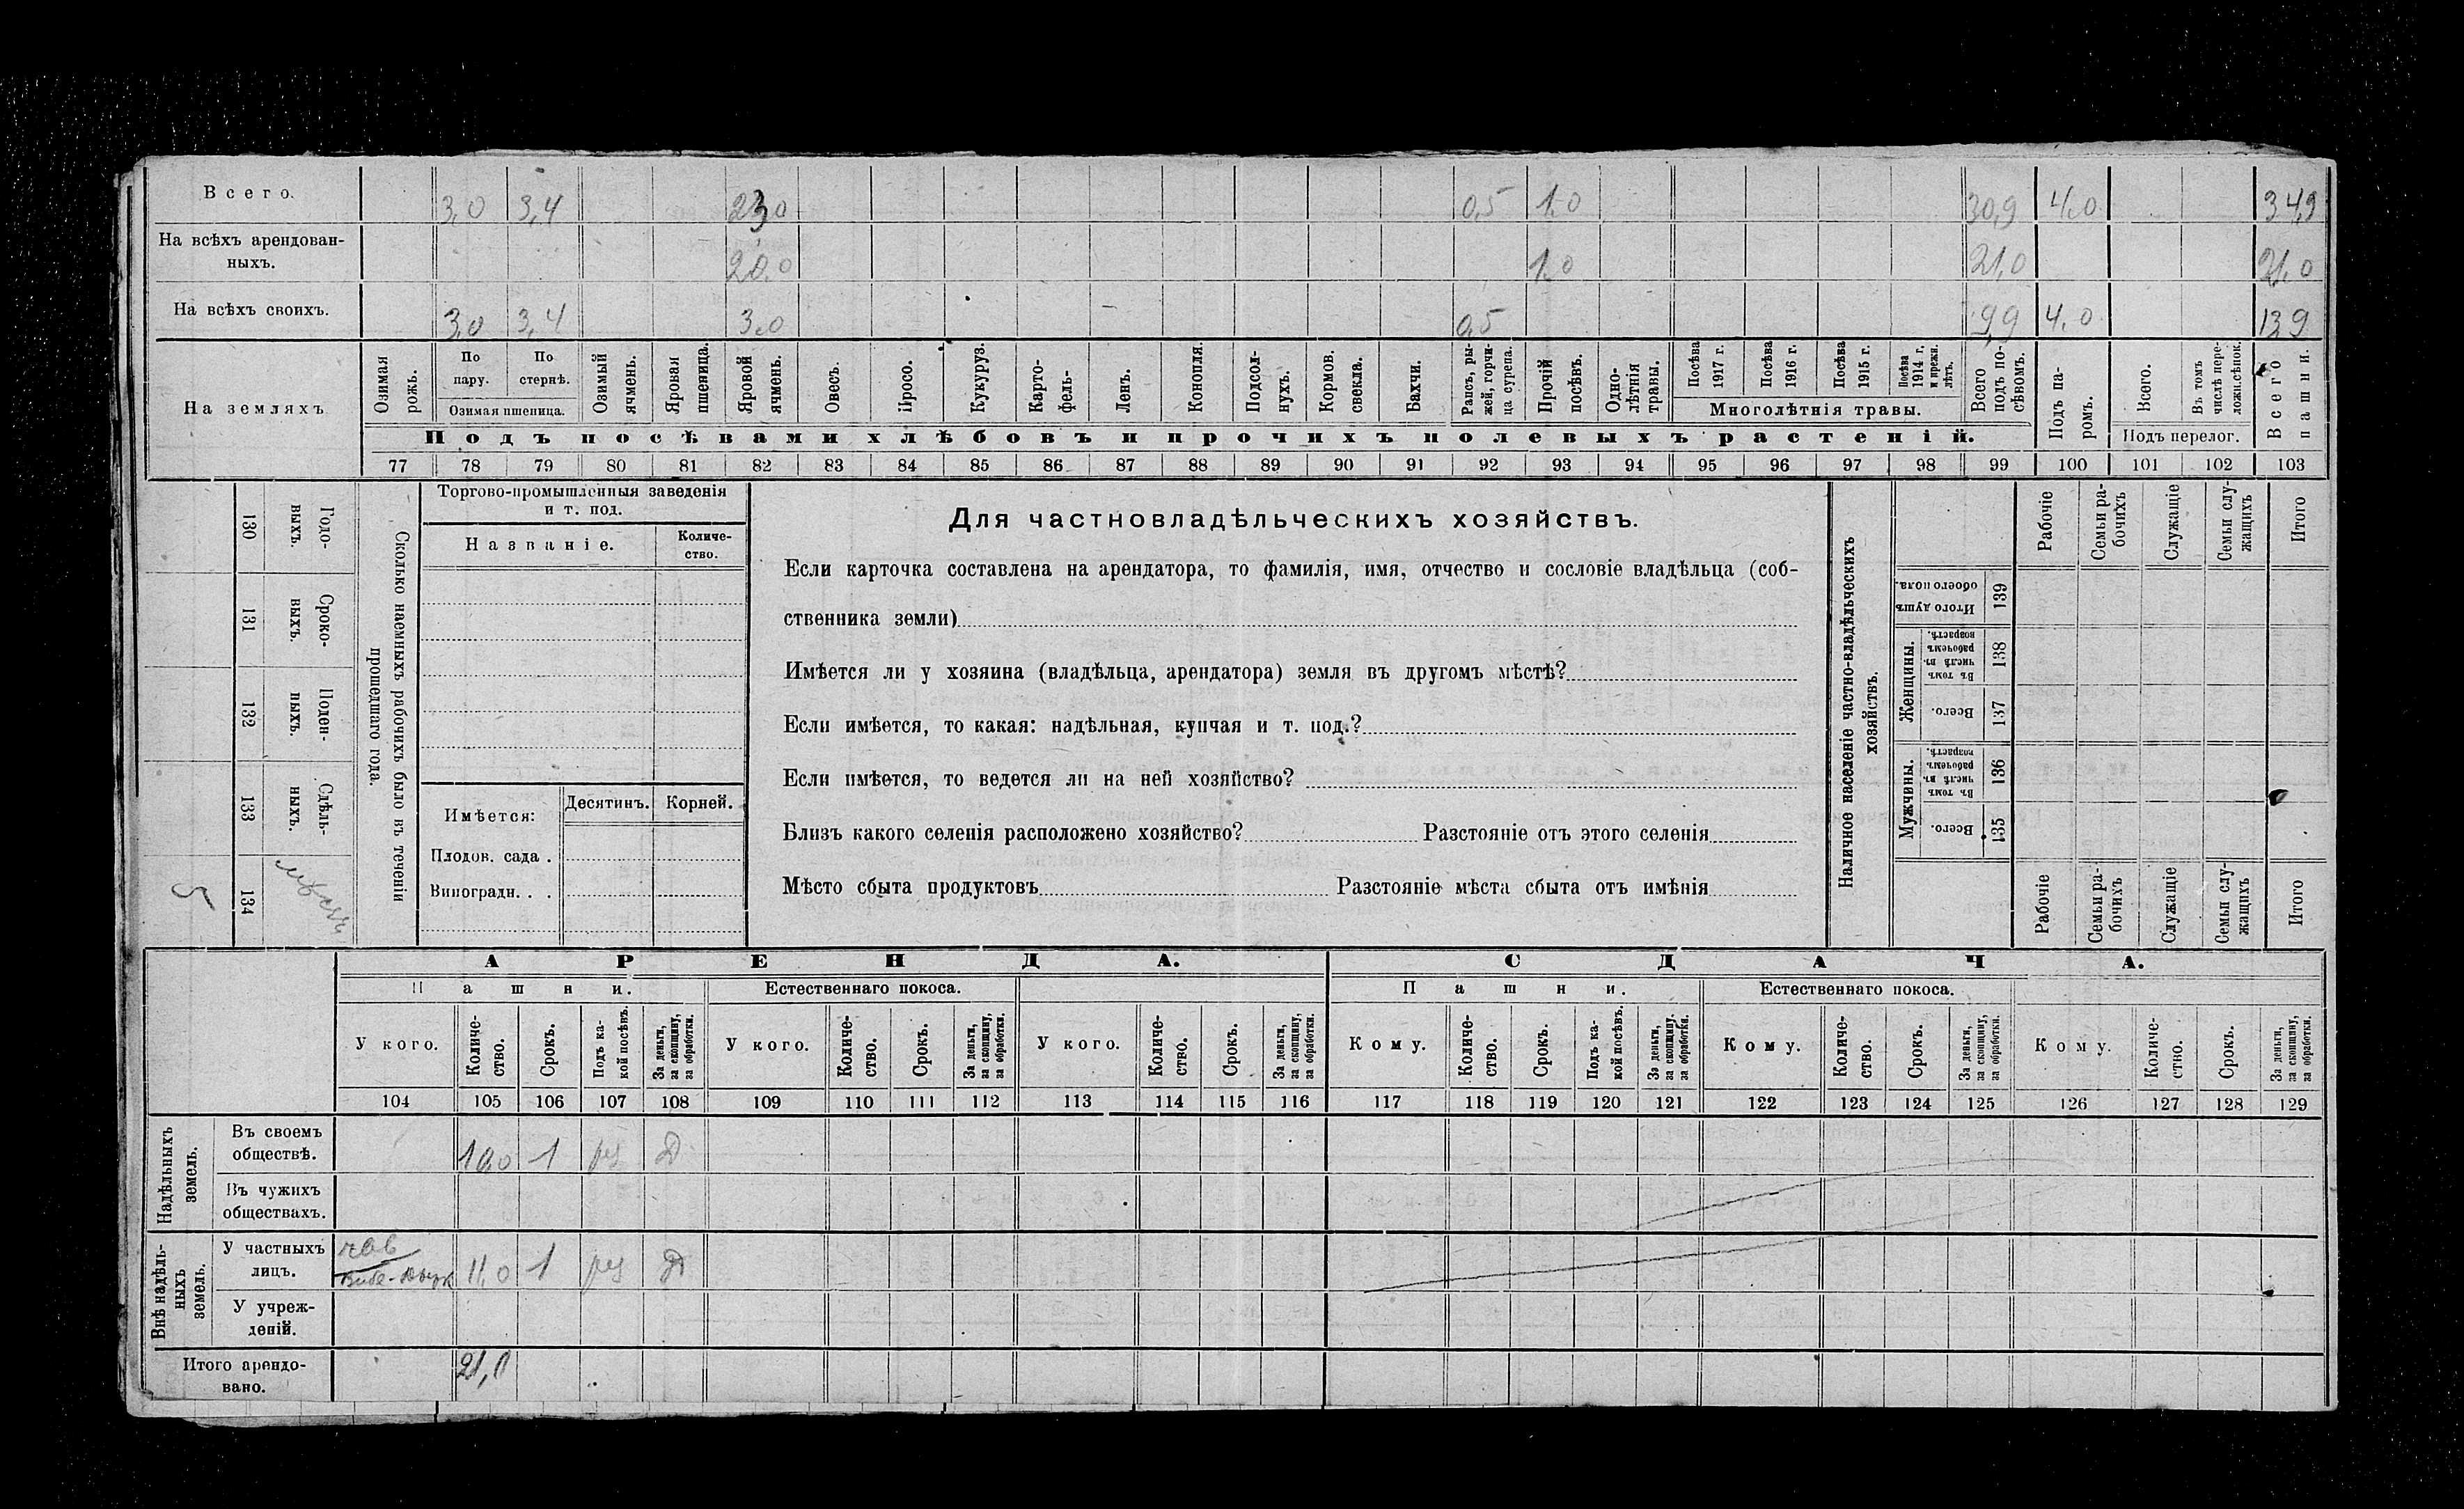 Всего. 3,0 3,4 23,0 0,5 1,0 30,9 4,0 34,9
На всѣхъ арендован-
ныхъ. 20,0 1,0 21,0 21,0
На всѣхъ своихъ. 3,0 3,4 3,0 0,5 9,9 4,0 13,9
На земляхъ
Озимая рожь.
По пару.
По стернѣ.
Озимая пшеница.
Озимый ячмень.
Яровая пшеница.
Яровой ячмень.
Овесъ.
Просо.
Кукуруз.
Карто-
фель-
Ленъ.
Конопля.
Подсол-
нухъ.
Кормов. свекла.
Бахчи.
Рапсъ, ры-
жей, горчи-
ца сурепа.
Прочій посѣвъ.
Одно-
лѣтнія травы.
Посѣва 1917 г.
Посѣва 1916 г.
Посѣва 1915 г.
Посѣва 1914 г. и прежн. лѣтъ.
Многолѣтнія травы.
Всего подъ по-
сѣвомъ.
Подъ па-
ромъ.
Всего.
Въ томъ числѣ пере-
ложн.сѣнок.
Подъ перелог.
Всего пашни.
Подъ посѣвами хлѣбовъ и прочихъ полевыхъ растеній.
77 78 79 80 81 82 83 84 85 86 87 88 89 90 91 92 93 94 95 96 97 98 99 100 101 102 103
Сколько наемныхъ рабочихъ было въ теченіи
прошедшаго года.
Годо-
выхъ.
130
Сроко-
выхъ.
131
Поден-
ныхъ.
132
Сдѣль-
ныхъ.
133
134
5
Торгово-промышленныя заведенія
и т. под.
Названіе.
Количе-
ство.
Имѣется:
Десятинъ.
Корней.
Плодов. сада .
Виноградн. . .
Для частновладѣльческихъ хозяйствъ.
Если карточка составлена на арендатора, то фамилія, имя, отчество и сословіе владѣльца (соб-
ственника земли)
Имѣется ли у хозяина (владѣльца, арендатора) земля въ другомъ мѣстѣ?
Если имѣется, то какая: надѣльная, купчая и т. под.?
Если имѣется, то ведется ли на ней хозяйство?
Близъ какого селенія расположено хозяйство? Разстояніе отъ этого селенія
Мѣсто сбыта продуктовъ Разстояніе мѣста сбыта отъ имѣнія
Наличное населеніе частно-владѣльческихъ
хозяйствъ.
Рабочіе
Семьи ра-
бочихъ
Служащіе
Семьи слу-
жащихъ
Итого
Итого душъ обоего пола.
139
Женщины.
Въ томъ числѣ въ рабочемъ возрастѣ.
138
Всего.
137
Мужчины.
Въ томъ числѣ въ рабочемъ возрастѣ.
136
Всего.
135
Рабочіе
Семьи ра-
бочихъ
Служащіе
Семьи слу-
жащихъ
Итого
АРЕНДА.
СДАЧА.
Пашни.
Естественнаго покоса.
Пашни.
Естественнаго покоса.
У кого.
Количе-
ство.
Срокъ.
Подъ ка-
кой посѣвъ.
За деньги,
за скопщину,
за обработки.
У кого.
Количе-
ство.
Срокъ.
За деньги,
за скопщину,
за обработки.
У кого.
Количе-
ство.
Срокъ.
За деньги,
за скопщину,
за обработки.
Кому.
Количе-
ство.
Срокъ.
Подъ ка-
кой посѣвъ.
За деньги,
за скопщину.
за обработки.
Кому.
Количе-
ство.
Срокъ.
За деньги,
за скопщину,
за обработки.
Кому.
Количе-
ство.
Срокъ.
За деньги,
за скопщину,
за обработки.
104 105 106 107 108 109 110 111 112 113 114 115 116 117 118 119 120 121 122 123 124 125 126 127 128 129
Надѣльныхъ
земель.
Въ своемъ
обществѣ. 10,0 1 Д
Въ чужихъ
обществахъ.
Внѣ надѣль-
ныхъ
земель.
У частныхъ
лицъ. 11,0 1 Д
У учреж-
деній.
Итого арендо-
вано. 21,0